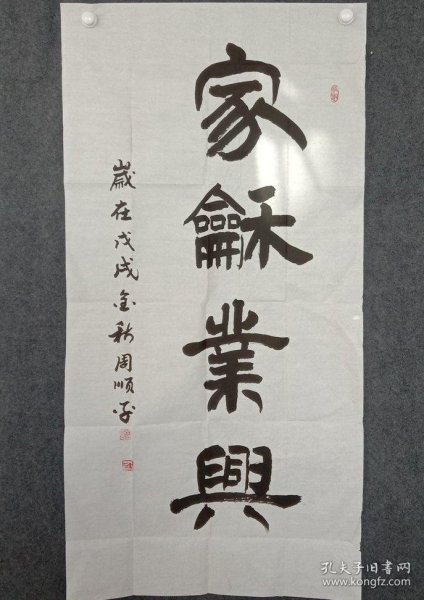 家龢業興
歲在戊戌金秋周順學
孔夫子旧书网
www.kongfz.com